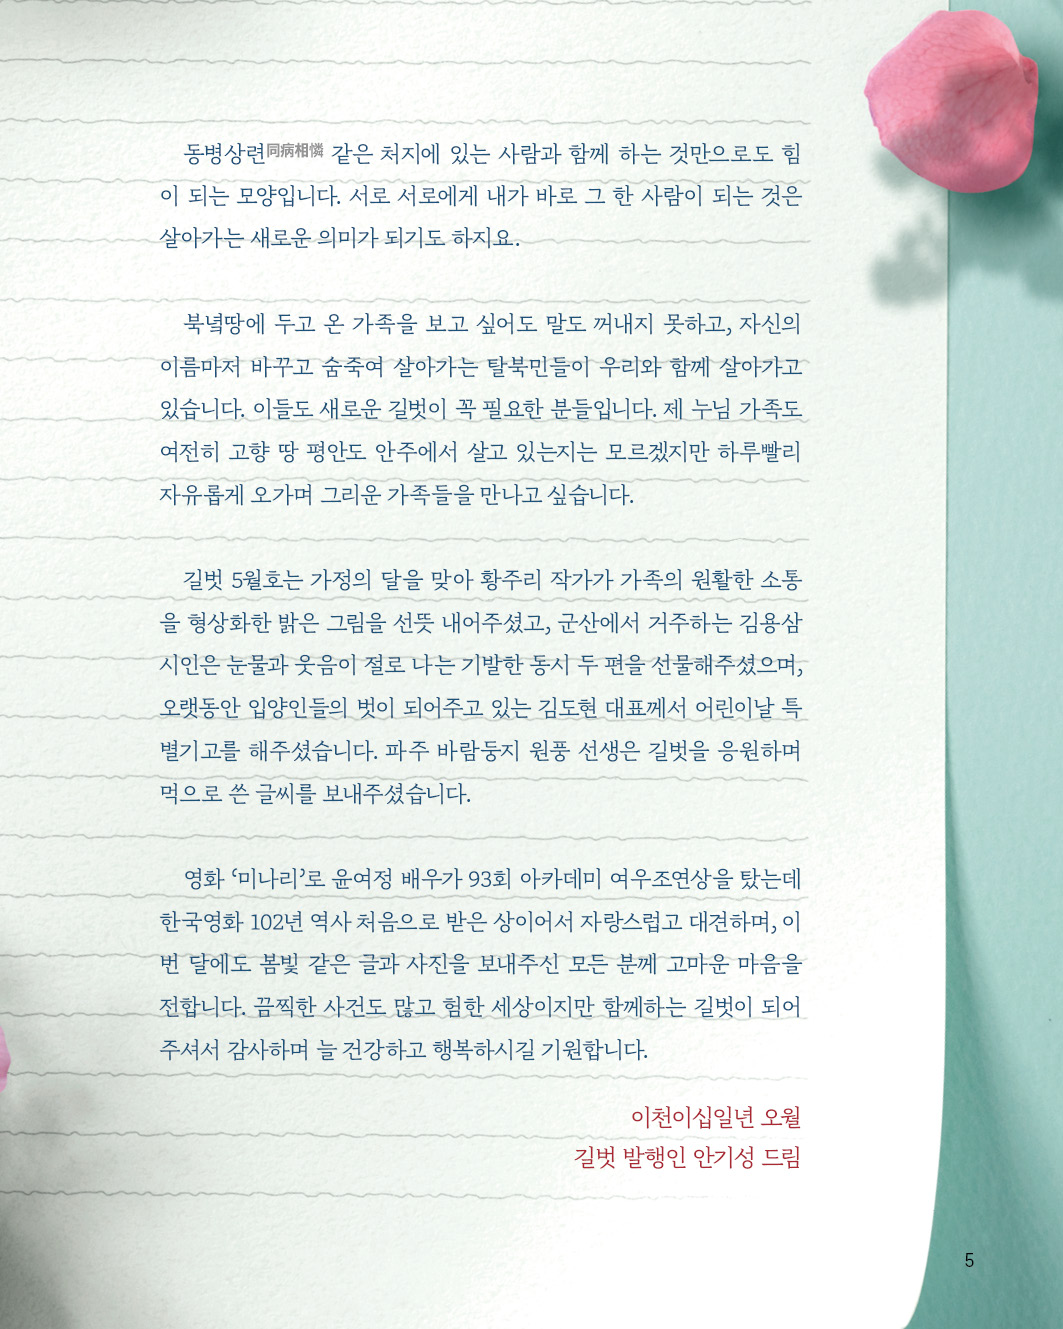 동병상련同病相憐 같은 처지에 있는 사람과 함께 하는 것만으로도 힘
이 되는 모양입니다. 서로 서로에게 내가 바로 그 한 사람이 되는 것은
살아가는 새로운 의미가 되기도 하지요.
북녘땅에 두고 온 가족을 보고 싶어도 말도 꺼내지 못하고, 자신의
이름마저 바꾸고 숨죽여 살아가는 탈북민들이 우리와 함께 살아가고
있습니다. 이들도 새로운 길벗이 꼭 필요한 분들입니다. 제 누님 가족도
여전히 고향 땅 평안도 안주에서 살고 있는지는 모르겠지만 하루빨리
자유롭게 오가며 그리운 가족들을 만나고 싶습니다.
길벗 5월호는 가정의 달을 맞아 황주리 작가가 가족의 원활한 소통
을 형상화한 밝은 그림을 선뜻 내어주셨고, 군산에서 거주하는 김용삼
시인은 눈물과 웃음이 절로 나는 기발한 동시 두 편을 선물해주셨으며,
오랫동안 입양인들의 벗이 되어주고 있는 김도현 대표께서 어린이날 특
별기고를 해주셨습니다. 파주 바람둥지 원풍 선생은 길벗을 응원하며
먹으로 쓴 글씨를 보내주셨습니다.
영화 ‘미나리’로 윤여정 배우가 93회 아카데미 여우조연상을 탔는데
한국영화 102년 역사 처음으로 받은 상이어서 자랑스럽고 대견하며, 이
번 달에도 봄빛 같은 글과 사진을 보내주신 모든 분께 고마운 마음을
전합니다. 끔찍한 사건도 많고 험한 세상이지만 함께하는 길벗이 되어
주셔서 감사하며 늘 건강하고 행복하시길 기원합니다.
이천이십일년 오월
길벗 발행인 안기성 드림
5